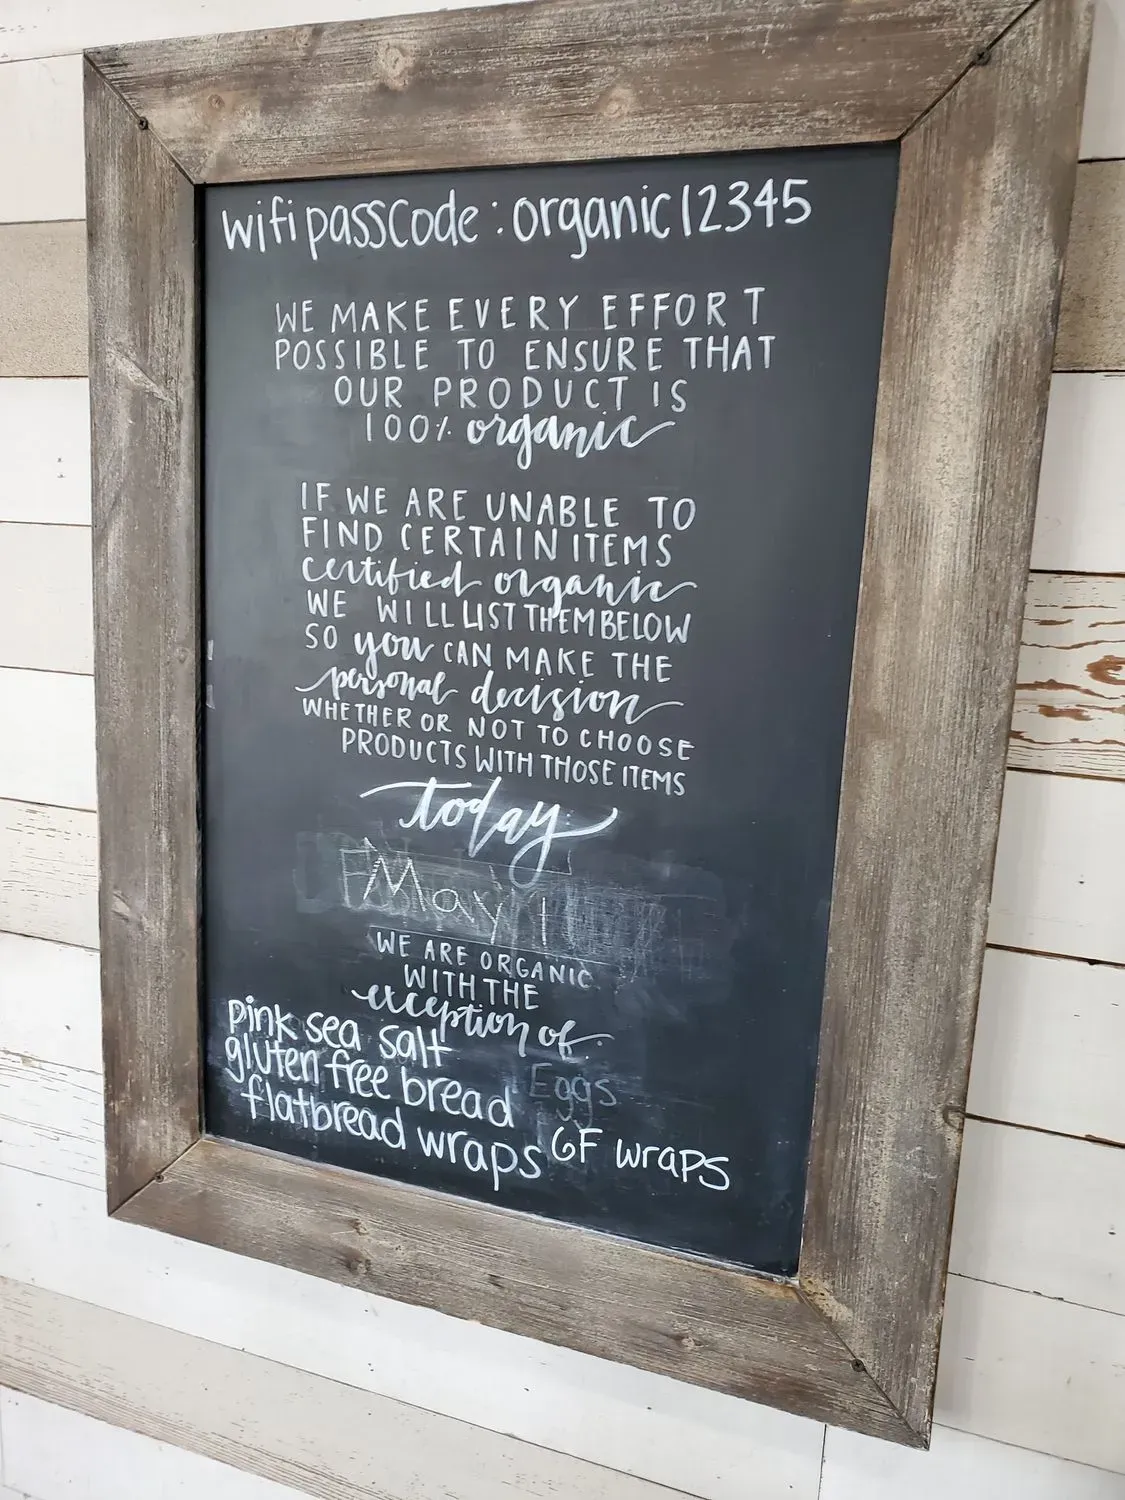 wifi passcode: organic12345
WE MAKE EVERY EFFORT
POSSIBLE TO ENSURE THAT
OUR PRODUCT IS
100% organic
IF WE ARE UNABLE TO
FIND CERTAIN ITEMS
certified organic
WE WILL LIST THEM BELOW
SO you CAN MAKE THE
personal decision
WHETHER OR NOT TO CHOOSE
PRODUCTS WITH THOSE ITEMS
today
May 1
WE ARE ORGANIC
WITH THE
exception of:
pink sea salt
gluten free bread Eggs
flatbread wraps GF wraps